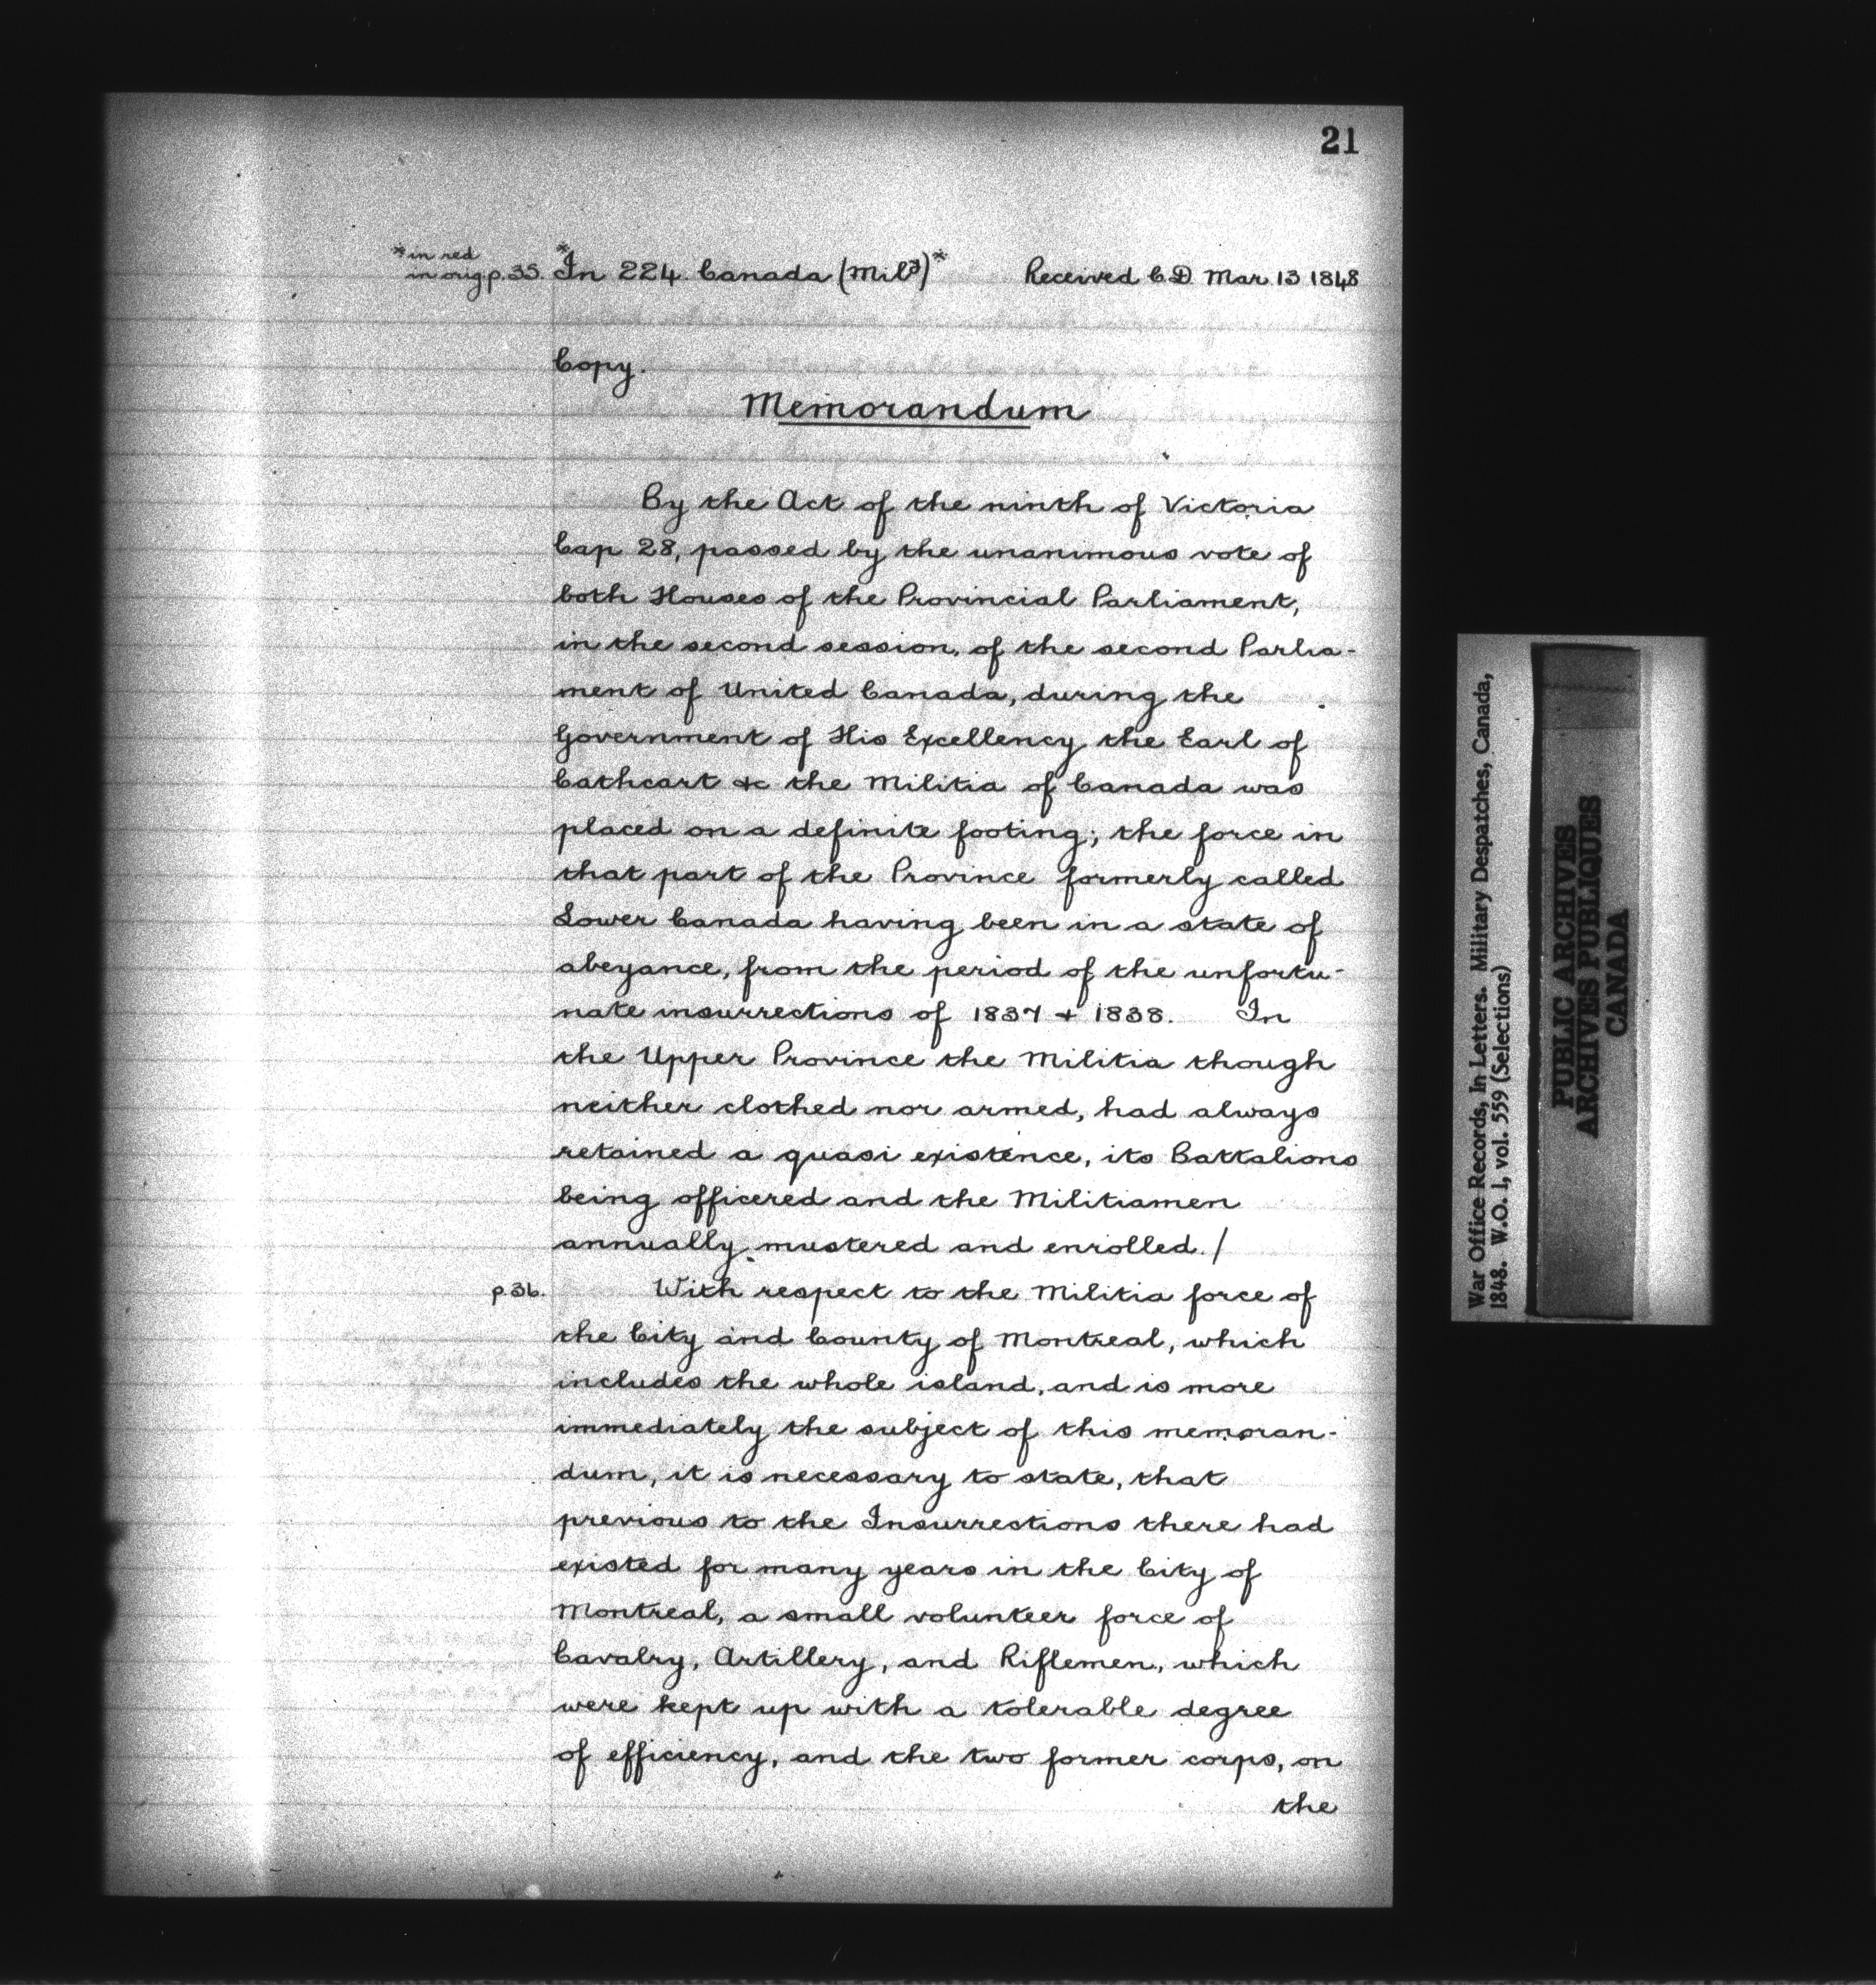 21
*in red
in orig. p. 35. *In 224 Canada (Mily)* Received C.D. Mar 13 1848
Copy.
Memorandum
By the Act of the ninth of Victoria
Cap 28, passed by the unanimous vote of
both Houses of the Provincial Parliament,
in the second session, of the second Parlia-
ment of United Canada, during the
Government of His Excellency the Earl of
Cathcart &c the Militia of Canada was
placed on a definite footing; the force in
that part of the Province formerly called
Lower Canada having been in a state of
abeyance, from the period of the unfortu-
nate insurrections of 1837 & 1838. In
the Upper Province the Militia though
neither clothed nor armed, had always
retained a quasi existence, its Battalions
being officered and the Militiamen
annually mustered and enrolled. /
p 36. With respect to the Militia force of
the City and County of Montreal, which
includes the whole island, and is more
immediately the subject of this memoran-
dum, it is necessary to state, that
previous to the Insurrections there had
existed for many years in the City of
Montreal, a small volunteer force of
Cavalry, Artillery, and Riflemen, which
were kept up with a tolerable degree
of efficiency, and the two former corps, on
the
War Office Records, In Letters. Military Despatches, Canada,
1848. W.O. 1, vol. 559 (Selections)
PUBLIC ARCHIVES
ARCHIVES PUBLIQUES
CANADA